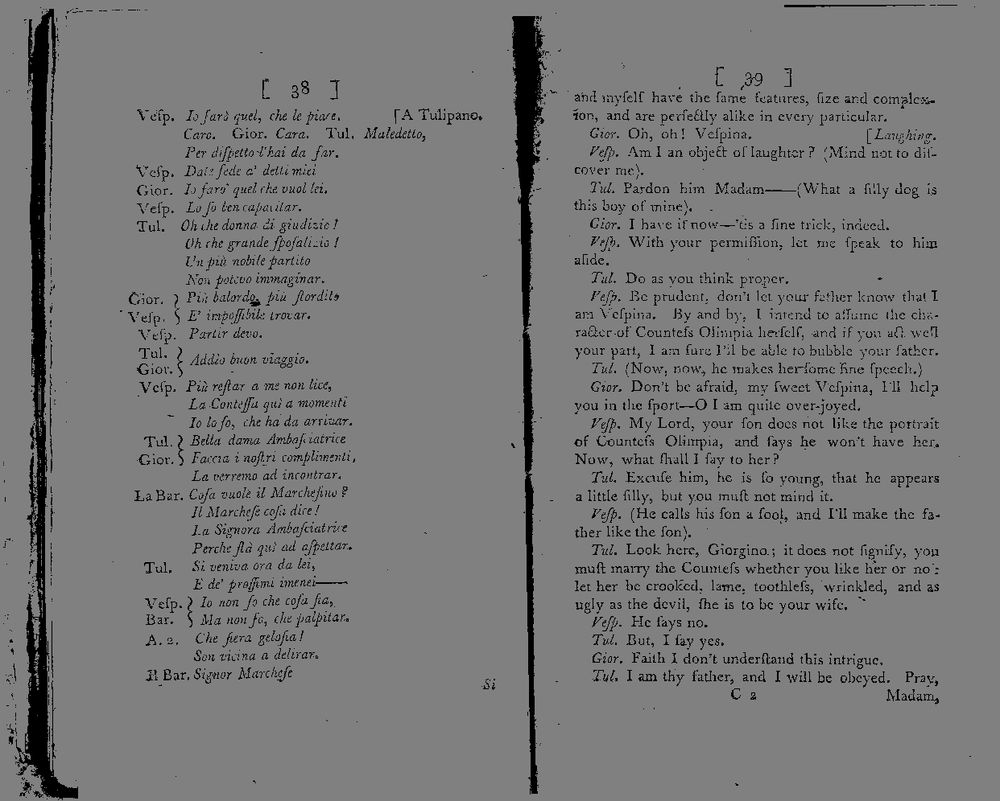 [ 38 ]
Veſp. Io farò quel, che le piace. [A Tulipano.
Caro. Gior. Cara. Tul. Maledetto,
Per diſpetto l'hai da far.
Veſp. Date fede a' detti miei
Gior. Io farò quel che vuol lei.
Veſp. Lo ſo ben capacitar.
Tul. Oh che donna di giudizio!
Oh che grande ſpoſalizio!
Un più nobile partito
Non potevo immaginar.
Gior. } Più balordo, più ſtordito
Veſp. } E' impoſſibile trovar.
Veſp. Partir devo.
Tul. }
Gior. } Addio buon viaggio.
Veſp. Più reſtar a me non lice,
La Conteſſa quì a momenti
Io lo ſo, che ha da arrivar.
Tul. } Bella dama Ambaſciatrice
Gior. } Faccia i noſtri complimenti,
La verremo ad incontrar.
La Bar. Coſa vuole il Marcheſino?
Il Marcheſe coſa dice!
La Signora Ambaſciatrice
Perche ſtà quì ad aſpettar.
Tul. Si veniva ora da lei,
E de' proſſimi imenei——
Veſp. } Io non ſo che coſa ſia,
Bar. } Ma non ſo, che palpitar.
A. 2. Che fiera geloſia!
Son vicina a delirar.
Il Bar. Signor Marcheſe
Si
[ 39 ]
and myſelf have the ſame features, ſize and complex-
ion, and are perfectly alike in every particular.
Gior. Oh, oh! Veſpina. [Laughing.
Veſp. Am I an object of laughter? (Mind not to diſ-
cover me).
Tul. Pardon him Madam——(What a ſilly dog is
this boy of mine).
Gior. I have it now—'tis a fine trick, indeed.
Veſp. With your permiſſion, let me ſpeak to him
aſide.
Tul. Do as you think proper.
Veſp. Be prudent, don't let your father know that I
am Veſpina. By and by, I intend to aſſume the cha-
racter of Counteſs Olimpia herſelf, and if you act well
your part, I am ſure I'll be able to bubble your father.
Tul. (Now, now, he makes her ſome fine ſpeech.)
Gior. Don't be afraid, my ſweet Veſpina, I'll help
you in the ſport—O I am quite over-joyed.
Veſp. My Lord, your ſon does not like the portrait
of Counteſs Olimpia, and ſays he won't have her.
Now, what ſhall I ſay to her?
Tul. Excuſe him, he is ſo young, that he appears
a little ſilly, but you muſt not mind it.
Veſp. (He calls his ſon a fool, and I'll make the fa-
ther like the ſon).
Tul. Look here, Giorgino; it does not ſignify, you
muſt marry the Counteſs whether you like her or no:
let her be crooked, lame, toothleſs, wrinkled, and as
ugly as the devil, ſhe is to be your wife.
Veſp. He ſays no.
Tul. But, I ſay yes.
Gior. Faith I don't underſtand this intrigue.
Tul. I am thy father, and I will be obeyed. Pray,
C 2 Madam,